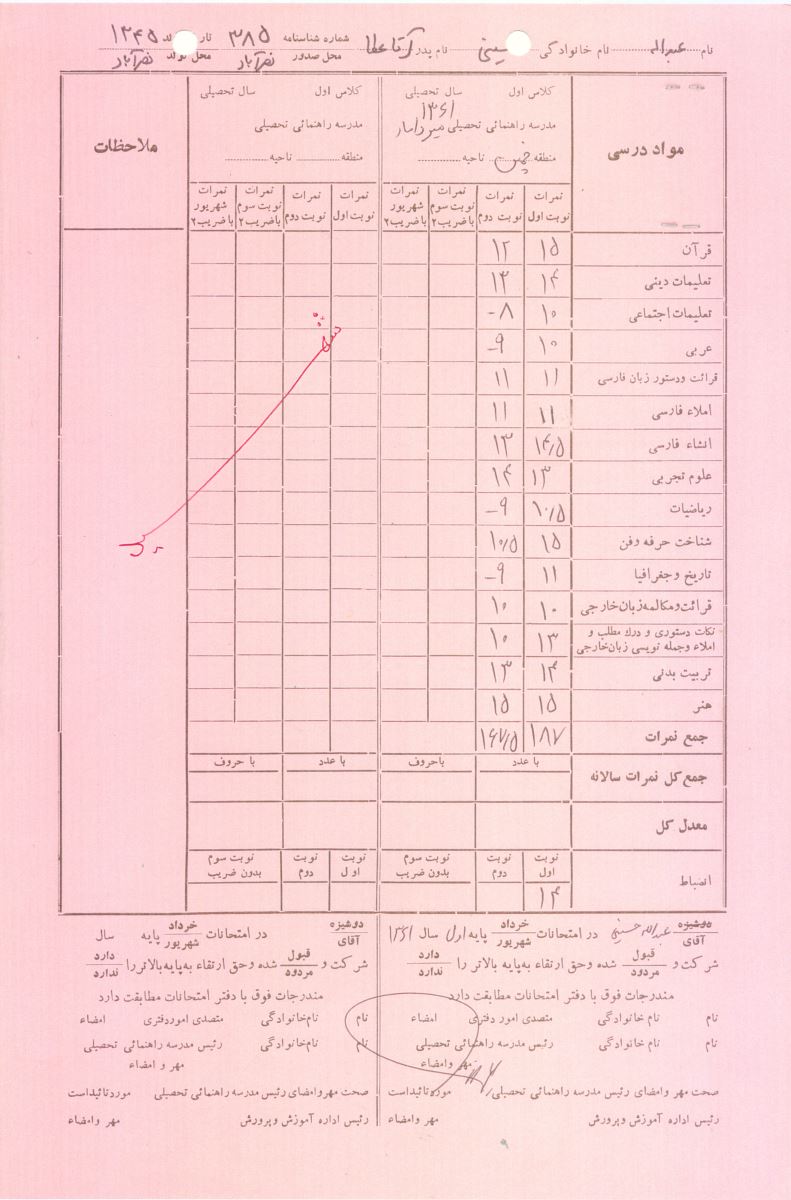 نام عبداله نام خانوادگی حسینی نام پدر آقا عطا شماره شناسنامه ۳۸۵ ۱۳۴۵
محل صدور نصرآباد نصرآباد
مواد درسی
کلاس اول سال تحصیلی ۱۳۶۱
مدرسه راهنمائی تحصیلی میرداماد
منطقه ناحیه
کلاس اول سال تحصیلی
مدرسه راهنمائی تحصیلی
منطقه ناحیه
ملاحظات
نمرات نوبت اول نمرات نوبت دوم نمرات نوبت سوم باضریب۲ نمرات شهریور باضریب۲ نمرات نوبت اول نمرات نوبت دوم نمرات نوبت سوم باضریب۲ نمرات شهریور باضریب۲
قرآن ۱۵ ۱۲
تعلیمات دینی ۱۴ ۱۳
تعلیمات اجتماعی ۱۰ ۸-
عربی ۱۰ ۹-
قرائت ودستور زبان فارسی ۱۱ ۱۱
املاء فارسی ۱۱ ۱۱
انشاء فارسی ۱۴/۵ ۱۳
علوم تجربی ۱۳ ۱۴
ریاضیات ۱۰/۵ ۹-
شناخت حرفه وفن ۱۵ ۱۰/۵
تاریخ وجغرافیا ۱۱ ۹-
قرائت‌ومکالمه‌زبان‌خارجی ۱۰ ۱۰
نکات دستوری و درك مطلب و
املاء وجمله نویسی زبان‌خارجی ۱۳ ۱۰
تربیت بدنی ۱۴ ۱۳
هنر ۱۵ ۱۵
جمع نمرات ۱۸۷ ۱۶۷/۵
جمع کل نمرات سالانه با عدد باحروف با عدد با حروف
معدل کل
انضباط نوبت اول نوبت دوم نوبت سوم بدون ضریب نوبت اول نوبت دوم نوبت سوم بدون ضریب
۱۴
دوشیزه آقای عبداله حسینی در امتحانات خرداد شهریور پایه اول سال ۱۳۶۱
شرکت و قبول مردود شده وحق ارتقاء به‌پایه بالاتر را دارد ندارد
مندرجات فوق با دفتر امتحانات مطابقت دارد
نام نام خانوادگی متصدی امور دفتری امضاء
نام نام خانوادگی رئیس مدرسه راهنمائی تحصیلی
مهر وامضاء
صحت مهر وامضای رئیس مدرسه راهنمائی تحصیلی موردتائیداست
رئیس اداره آموزش وپرورش مهر وامضاء
دوشیزه آقای در امتحانات خرداد شهریور پایه سال
شرکت و قبول مردود شده وحق ارتقاء به‌پایه بالاتر را دارد ندارد
مندرجات فوق با دفتر امتحانات مطابقت دارد
نام نام‌خانوادگی متصدی اموردفتری امضاء
نام نام‌خانوادگی رئیس مدرسه راهنمائی تحصیلی
مهر و امضاء
صحت مهر وامضای رئیس مدرسه راهنمائی تحصیلی موردتائیداست
رئیس اداره آموزش وپرورش مهر وامضاء